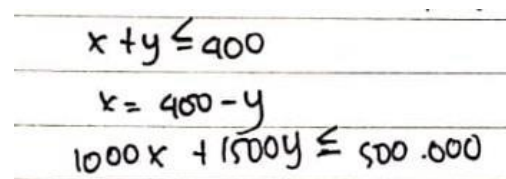 x + y ≤ 400
x = 400 - y
1000x + 1500y ≤ 500.000